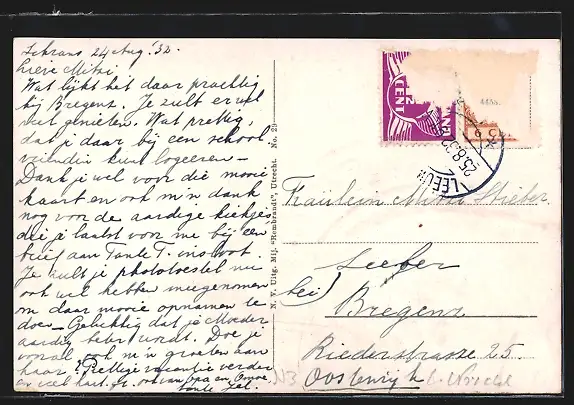 Schrans 24 Aug. '32.
Lieve Mitzi
Wat lijkt het daar prachtig
bij Bregenz. Je zult er wel
van genieten. Wat prettig,
dat je daar bij een school
vriendin kunt logeeren —
Dank je wel voor die mooie
kaart en ook m'n dank
nog voor de aardige kiekjes
die je laatst voor me bij een
brief aan Tante T. insloot.
Je zult je phototoestel nu
ook wel hebben meegenomen
om daar mooie opnamen te
doen — Gelukkig dat je Moeder
aardig beter wordt. Doe je
vooral ook m'n groeten aan
haar? Prettige vacantie verder
en veel hart. gr. ook van Opa en Omoe
tante Jel.
N. V. Uitg. Mij. "Rembrandt", Utrecht. No. 29
CENT
LEEUW
25.8.32
Fräulein Mitzi Stieber
Seeber
bei
Bregenz
Riederstrasse 25.
Oostenrijk
N3